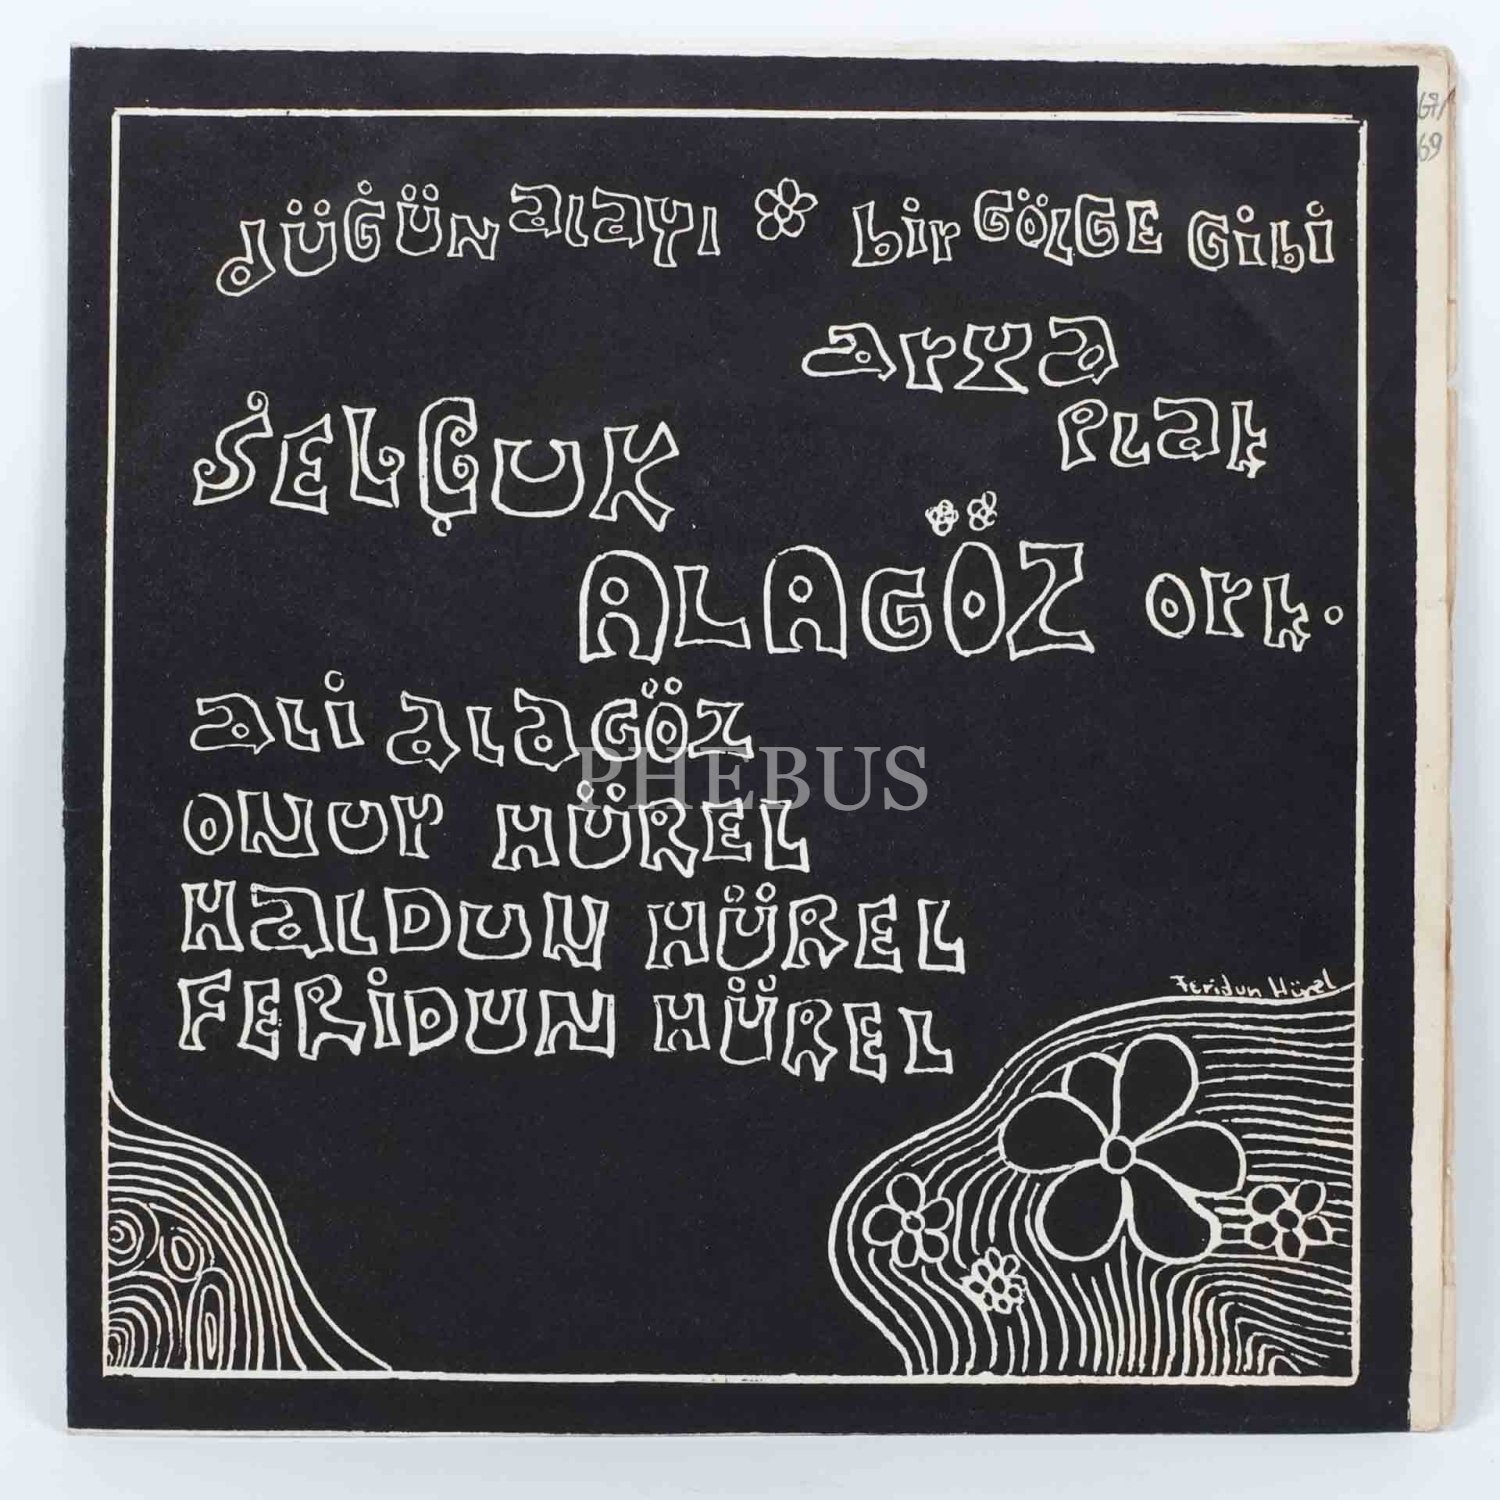 düğün alayı bir GÖLGE GiBi
arya
PLak
SELÇUK
ALAGÖZ ork.
aLi aLaGÖZ
ONUr HÜREL
HaLDUN HÜREL
FERİDUN HÜREL
Feridun Hürel
PHEBUS
69